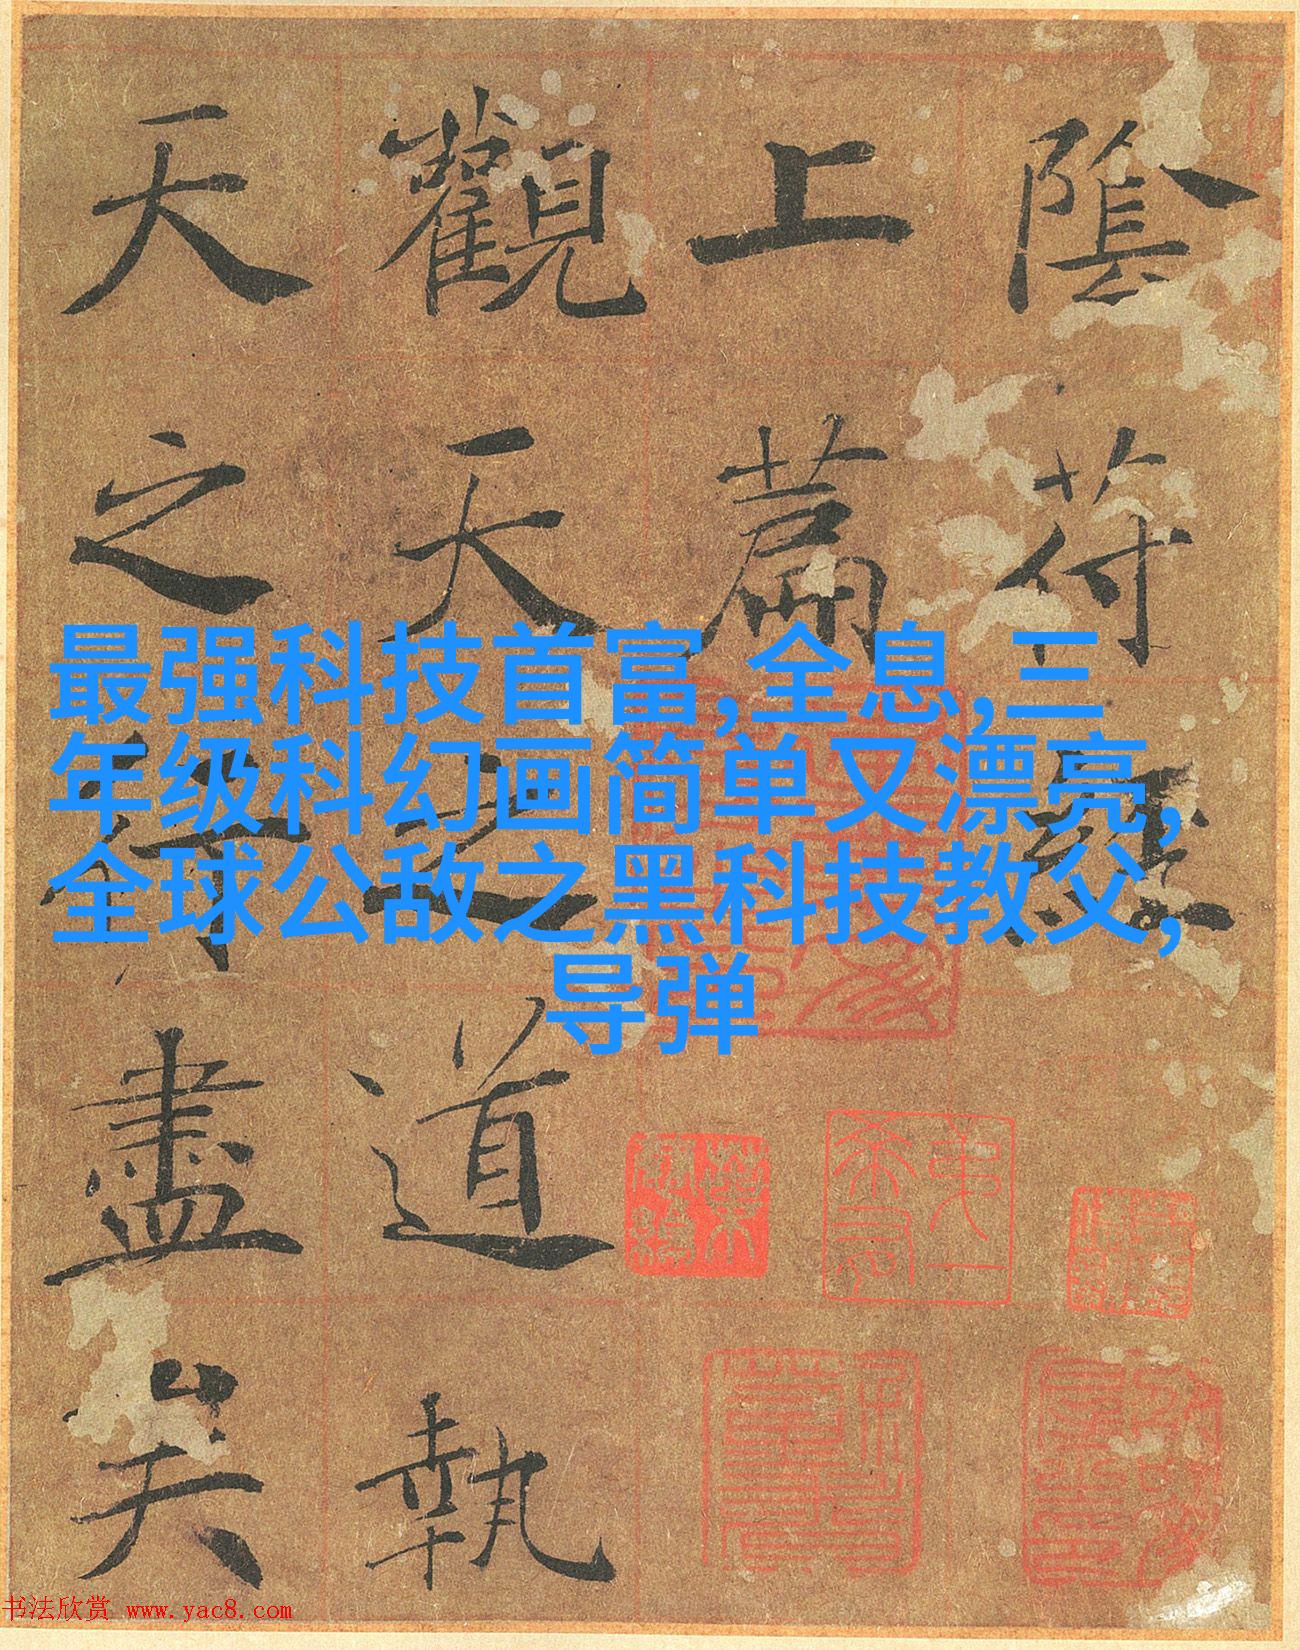 陰苻經
上萹
觀天之道執
天之行盡矣
最强科技首富,全息,三
年级科幻画简单又漂亮,
全球公敌之黑科技教父,
导弹
书法欣赏 www.yac8.com